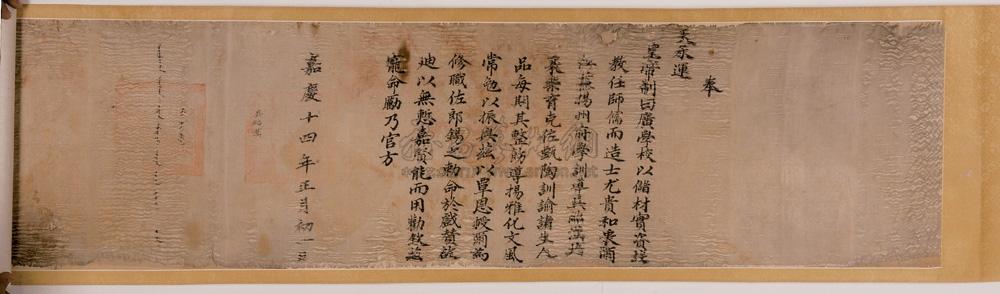 奉
天承運
皇帝制曰廣學校以儲材實資授
教任師儒而造士尤貴和衷爾
揚州府學訓導吳
樂育克佐甄陶訓諭諸生人
品每期其整飭導揚雅化文風
常勉以振興茲以覃恩授爾為
修職佐郎錫之勅命於戲贊啟
迪以無慙嘉賢能而用勸欽茲
寵命勵乃官方
嘉慶十四年正月初一日